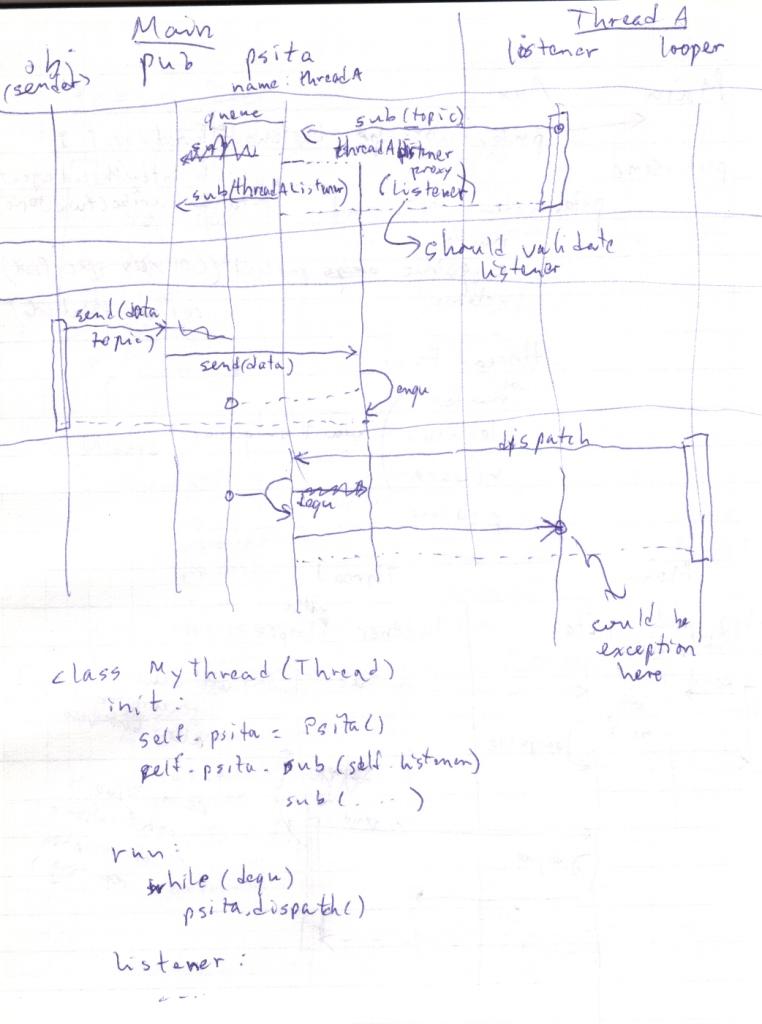 Main
Thread A
obj
(sender)
pub
psita
name: threadA
listener
looper
queue
sub(topic)
threadAListener
proxy
(listener)
sub(threadAListener)
should validate
listener
send(data
topic)
send(data)
enqu
dispatch
dequ
could be
exception
here
class MyThread(Thread)
init:
self.psita = Psita()
self.psita.sub(self.listener)
sub(....)
run:
while(dequ)
psita.dispatch()
listener:
....